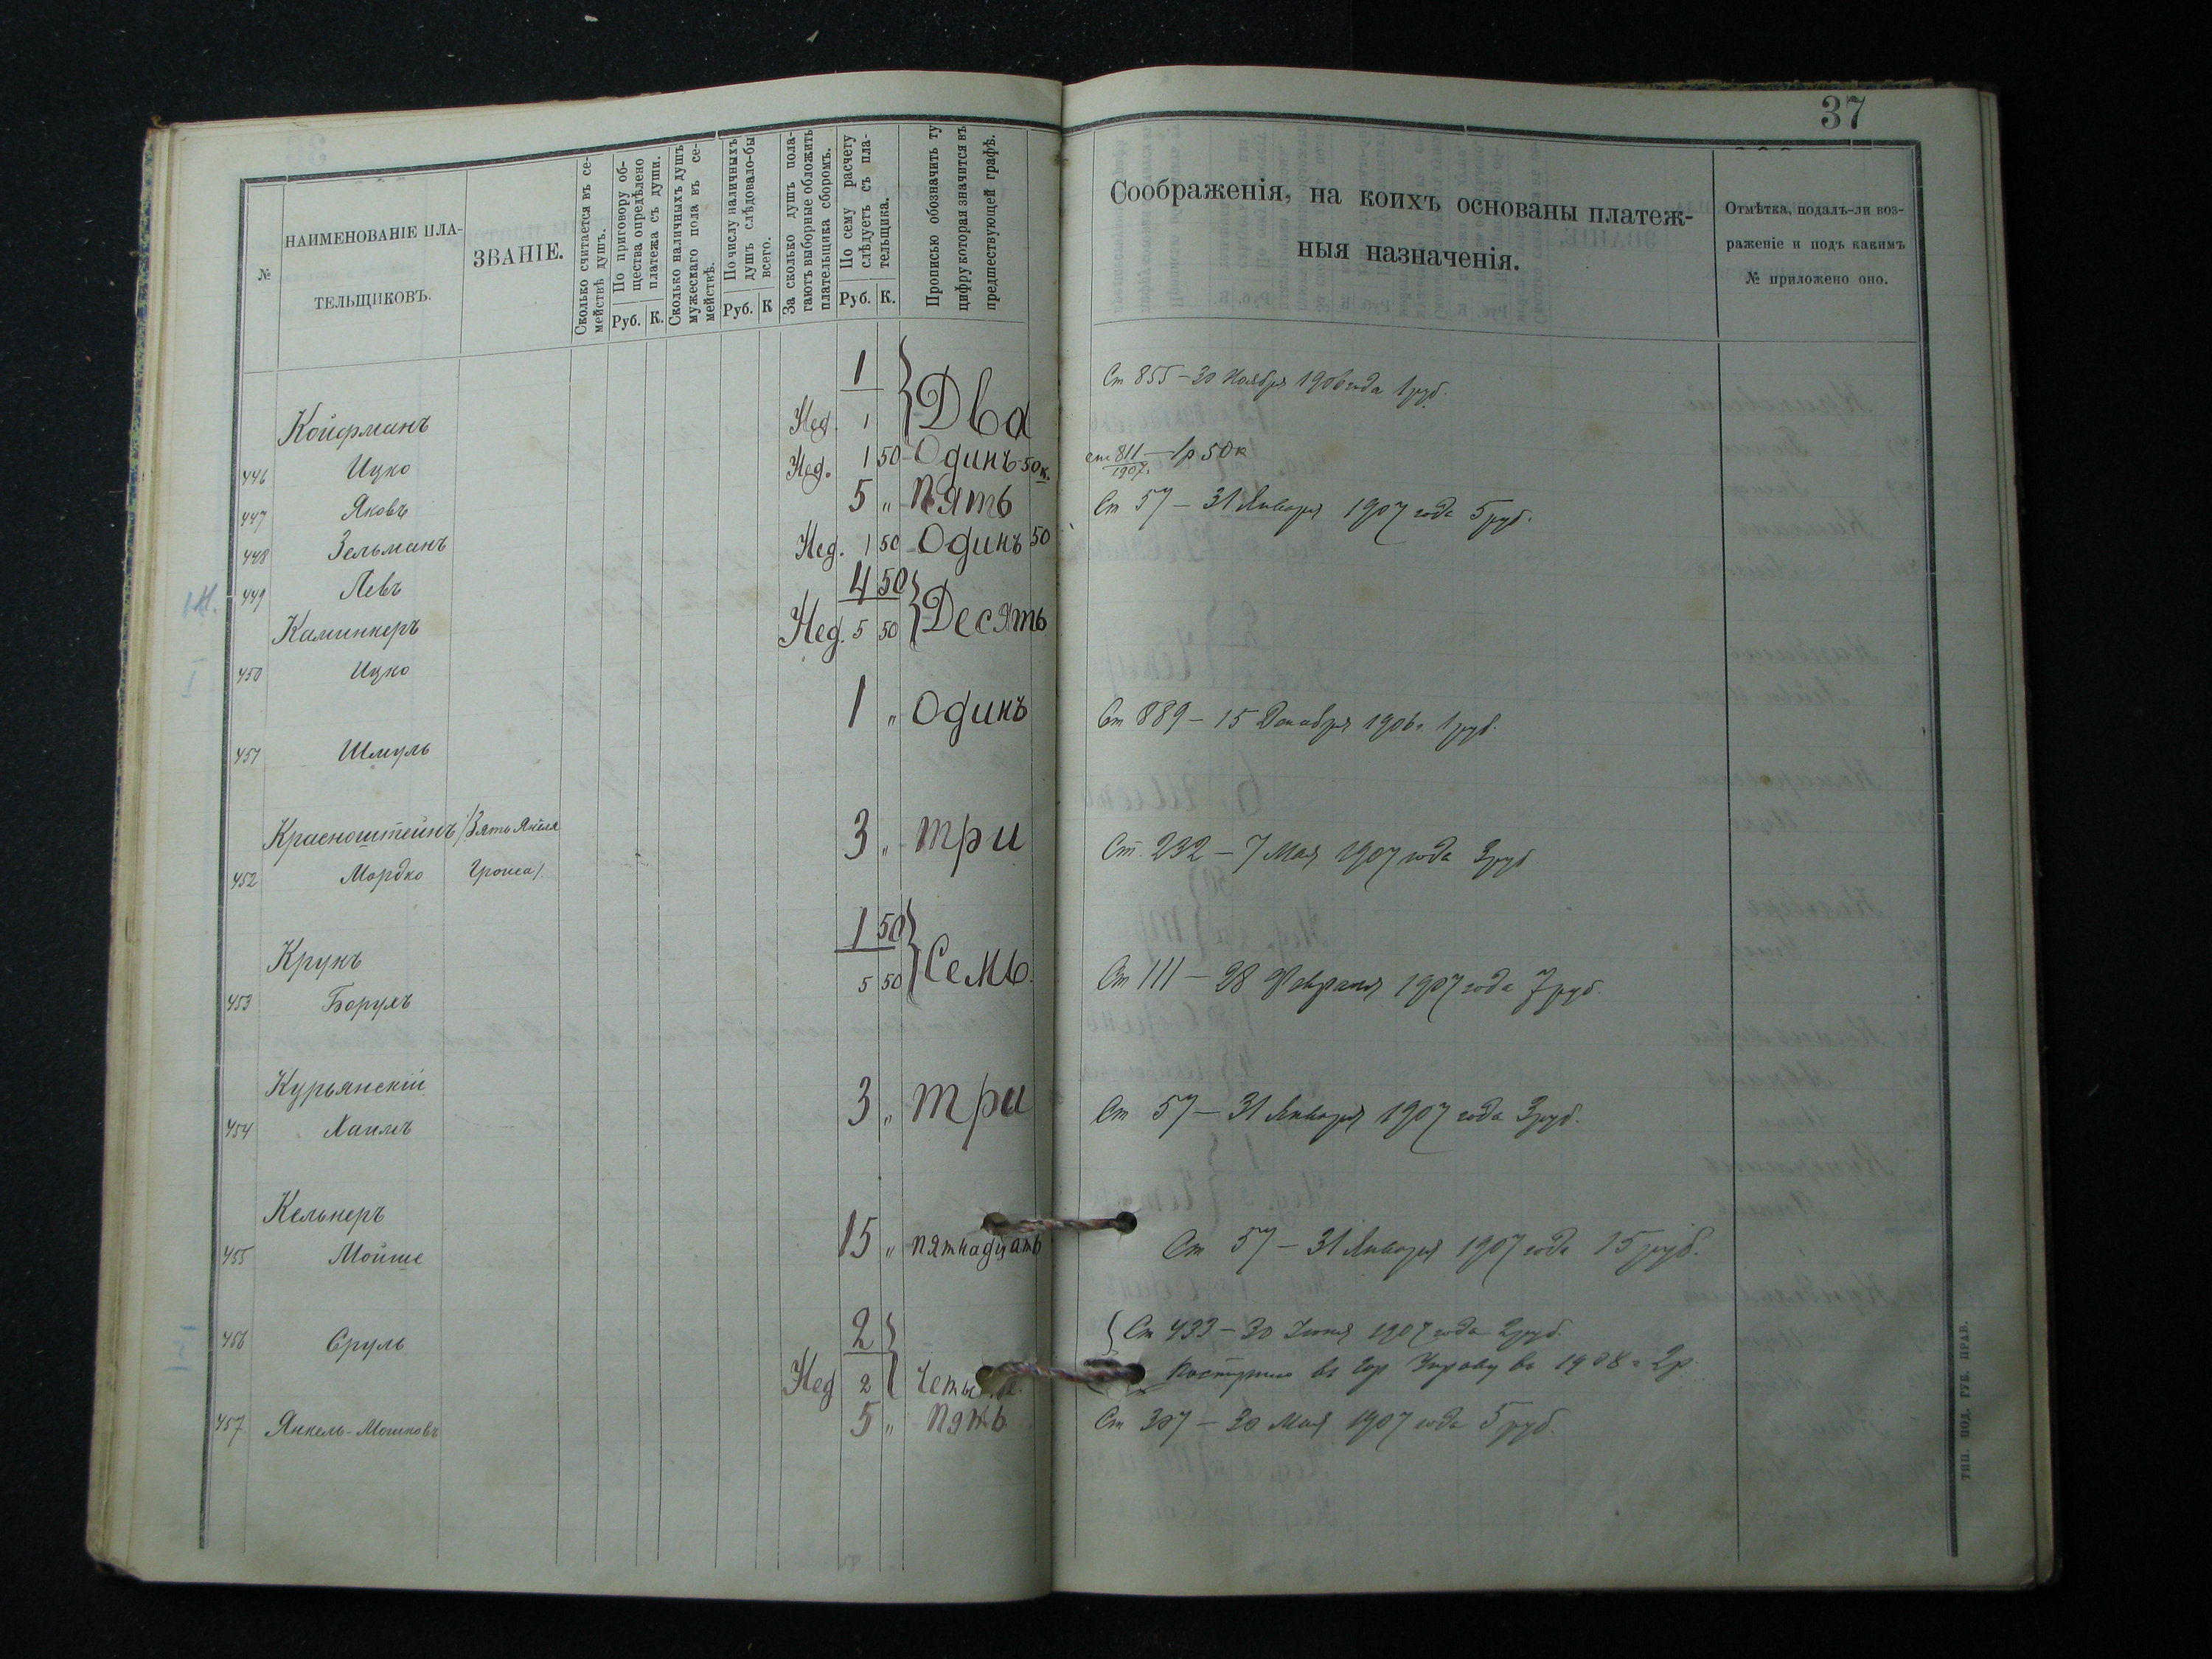 37
№
НАИМЕНОВАНІЕ ПЛА-
ТЕЛЬЩИКОВЪ.
ЗВАНІЕ.
Сколько считается въ се-
мействѣ душъ.
По приговору об-
щества опредѣлено
платежа съ души.
Руб. К.
Сколько наличныхъ душъ
мужескаго пола въ се-
мействѣ.
По числу наличныхъ
душъ слѣдовало-бы
всего.
Руб. К
За сколько душъ пола-
гаютъ выборные обложить
плательщика сборомъ.
По сему расчету
слѣдуетъ съ пла-
тельщика.
Руб. К.
Прописью обозначить ту
цифру которая значится въ
предшествующей графѣ.
Соображенія, на коихъ основаны платеж-
ныя назначенія.
Отмѣтка, подалъ-ли воз-
раженіе и подъ какимъ
№ приложено оно.
1
Ст 855 - 30 Ноября 1906 года 1 руб.
Койфманъ Нед. 1 Два
446 Ицко Нед. 1 50 - Одинъ 50 к.
ст 811 - 1р 50к
1907.
447 Яковъ 5 „ Пять
Ст 57 - 31 Января 1907 года 5 руб.
448 Зельманъ Нед. 1 50 - Одинъ 50
449 Левъ 4 50
Каминкеръ Нед. 5 50 Десять
450 Ицко
1 „ Одинъ
Ст 889 - 15 Декабря 1906 г. 1 руб.
451 Шмуль
Красноштейнъ /Зять Янкеля 3 „ три
Ст. 232 - 7 Мая 1907 года 3 руб
452 Мордко
1 50
Крукъ 5 50 Семь.
Ст 111 - 28 Февраля 1907 года 7 руб.
453 Борухъ
Курьянскій 3 „ три
Ст 57 - 31 Января 1907 года 3 руб.
454 Хаимъ
Кельнеръ
15 „ пятнадцать
Ст 57 - 31 Января 1907 года 15 руб.
455 Мойше
2
456 Сруль
Ст 433 - 30 Іюня 1907 года 2 руб.
Нед 2
Поступило въ Гор Управу въ 1908 г 2р.
457 Янкель-Мошковъ 5 „ пять
Ст 307 - 30 Мая 1907 года 5 руб.
ТИП. ПОД. ГУБ. ПРАВ.